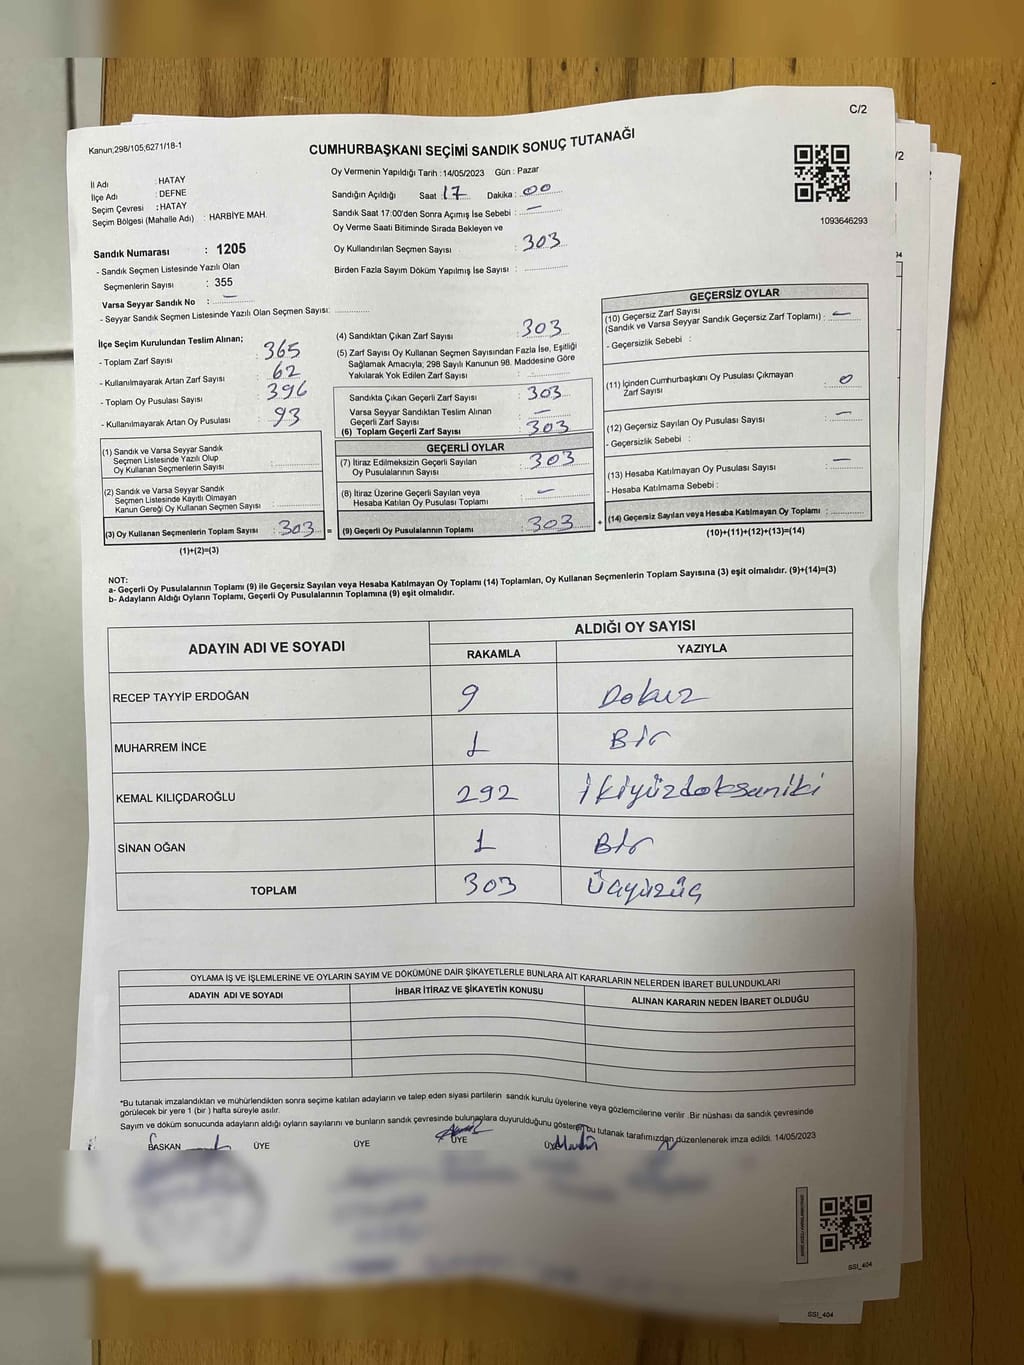 C/2
Kanun,298/105;6271/18-1
CUMHURBAŞKANI SEÇİMİ SANDIK SONUÇ TUTANAĞI
İl Adı : HATAY
İlçe Adı : DEFNE
Seçim Çevresi : HATAY
Seçim Bölgesi (Mahalle Adı) : HARBİYE MAH.
Sandık Numarası : 1205
- Sandık Seçmen Listesinde Yazılı Olan
Seçmenlerin Sayısı : 355
Varsa Seyyar Sandık No : —
- Seyyar Sandık Seçmen Listesinde Yazılı Olan Seçmen Sayısı:
Oy Vermenin Yapıldığı Tarih : 14/05/2023 Gün : Pazar
Sandığın Açıldığı Saat 17 Dakika : 00
Sandık Saat 17:00'den Sonra Açımış İse Sebebi : —
Oy Verme Saati Bitiminde Sırada Bekleyen ve
Oy Kullandırılan Seçmen Sayısı : 303
Birden Fazla Sayım Döküm Yapılmış İse Sayısı :
1093646293
İlçe Seçim Kurulundan Teslim Alınan;
- Toplam Zarf Sayısı : 365
- Kullanılmayarak Artan Zarf Sayısı : 62
- Toplam Oy Pusulası Sayısı : 396
- Kullanılmayarak Artan Oy Pusulası : 93
(1) Sandık ve Varsa Seyyar Sandık
Seçmen Listesinde Yazılı Olup
Oy Kullanan Seçmenlerin Sayısı :
(2) Sandık ve Varsa Seyyar Sandık
Seçmen Listesinde Kayıtlı Olmayan
Kanun Gereği Oy Kullanan Seçmen Sayısı :
(3) Oy Kullanan Seçmenlerin Toplam Sayısı : 303 =
(1)+(2)=(3)
(4) Sandıktan Çıkan Zarf Sayısı : 303
(5) Zarf Sayısı Oy Kullanan Seçmen Sayısından Fazla İse, Eşitliği
Sağlamak Amacıyla; 298 Sayılı Kanunun 98. Maddesine Göre
Yakılarak Yok Edilen Zarf Sayısı :
Sandıkta Çıkan Geçerli Zarf Sayısı : 303
Varsa Seyyar Sandıktan Teslim Alınan
Geçerli Zarf Sayısı : —
(6) Toplam Geçerli Zarf Sayısı : 303
GEÇERLİ OYLAR
(7) İtiraz Edilmeksizin Geçerli Sayılan
Oy Pusulalarının Sayısı : 303
(8) İtiraz Üzerine Geçerli Sayılan veya
Hesaba Katılan Oy Pusulası Toplamı : —
(9) Geçerli Oy Pusulalarının Toplamı : 303 +
GEÇERSİZ OYLAR
(10) Geçersiz Zarf Sayısı
(Sandık ve Varsa Seyyar Sandık Geçersiz Zarf Toplamı) : —
- Geçersizlik Sebebi :
(11) İçinden Cumhurbaşkanı Oy Pusulası Çıkmayan
Zarf Sayısı : 0
(12) Geçersiz Sayılan Oy Pusulası Sayısı : —
- Geçersizlik Sebebi :
(13) Hesaba Katılmayan Oy Pusulası Sayısı : —
- Hesaba Katılmama Sebebi :
(14) Geçersiz Sayılan veya Hesaba Katılmayan Oy Toplamı :
(10)+(11)+(12)+(13)=(14)
NOT:
a- Geçerli Oy Pusulalarının Toplamı (9) ile Geçersiz Sayılan veya Hesaba Katılmayan Oy Toplamı (14) Toplamları, Oy Kullanan Seçmenlerin Toplam Sayısına (3) eşit olmalıdır. (9)+(14)=(3)
b- Adayların Aldığı Oyların Toplamı, Geçerli Oy Pusulalarının Toplamına (9) eşit olmalıdır.
ADAYIN ADI VE SOYADI
ALDIĞI OY SAYISI
RAKAMLA YAZIYLA
RECEP TAYYİP ERDOĞAN 9 Dokuz
MUHARREM İNCE 1 Bir
KEMAL KILIÇDAROĞLU 292 İkiyüzdoksaniki
SİNAN OĞAN 1 Bir
TOPLAM 303 Üçyüzüç
OYLAMA İŞ VE İŞLEMLERİNE VE OYLARIN SAYIM VE DÖKÜMÜNE DAİR ŞİKAYETLERLE BUNLARA AİT KARARLARIN NELERDEN İBARET BULUNDUKLARI
ADAYIN ADI VE SOYADI İHBAR İTİRAZ VE ŞİKAYETİN KONUSU ALINAN KARARIN NEDEN İBARET OLDUĞU
*Bu tutanak imzalandıktan ve mühürlendikten sonra seçime katılan adayların ve talep eden siyasi partilerin sandık kurulu üyelerine veya gözlemcilerine verilir. Bir nüshası da sandık çevresinde
görülecek bir yere 1 (bir ) hafta süreyle asılır.
Sayım ve döküm sonucunda adayların aldığı oyların sayılarını ve bunların sandık çevresinde bulunanlara duyurulduğunu gösteren bu tutanak tarafımızdan düzenlenerek imza edildi. 14/05/2023
BAŞKAN ÜYE ÜYE ÜYE ÜYE
SSI_404
SSI_404
/2